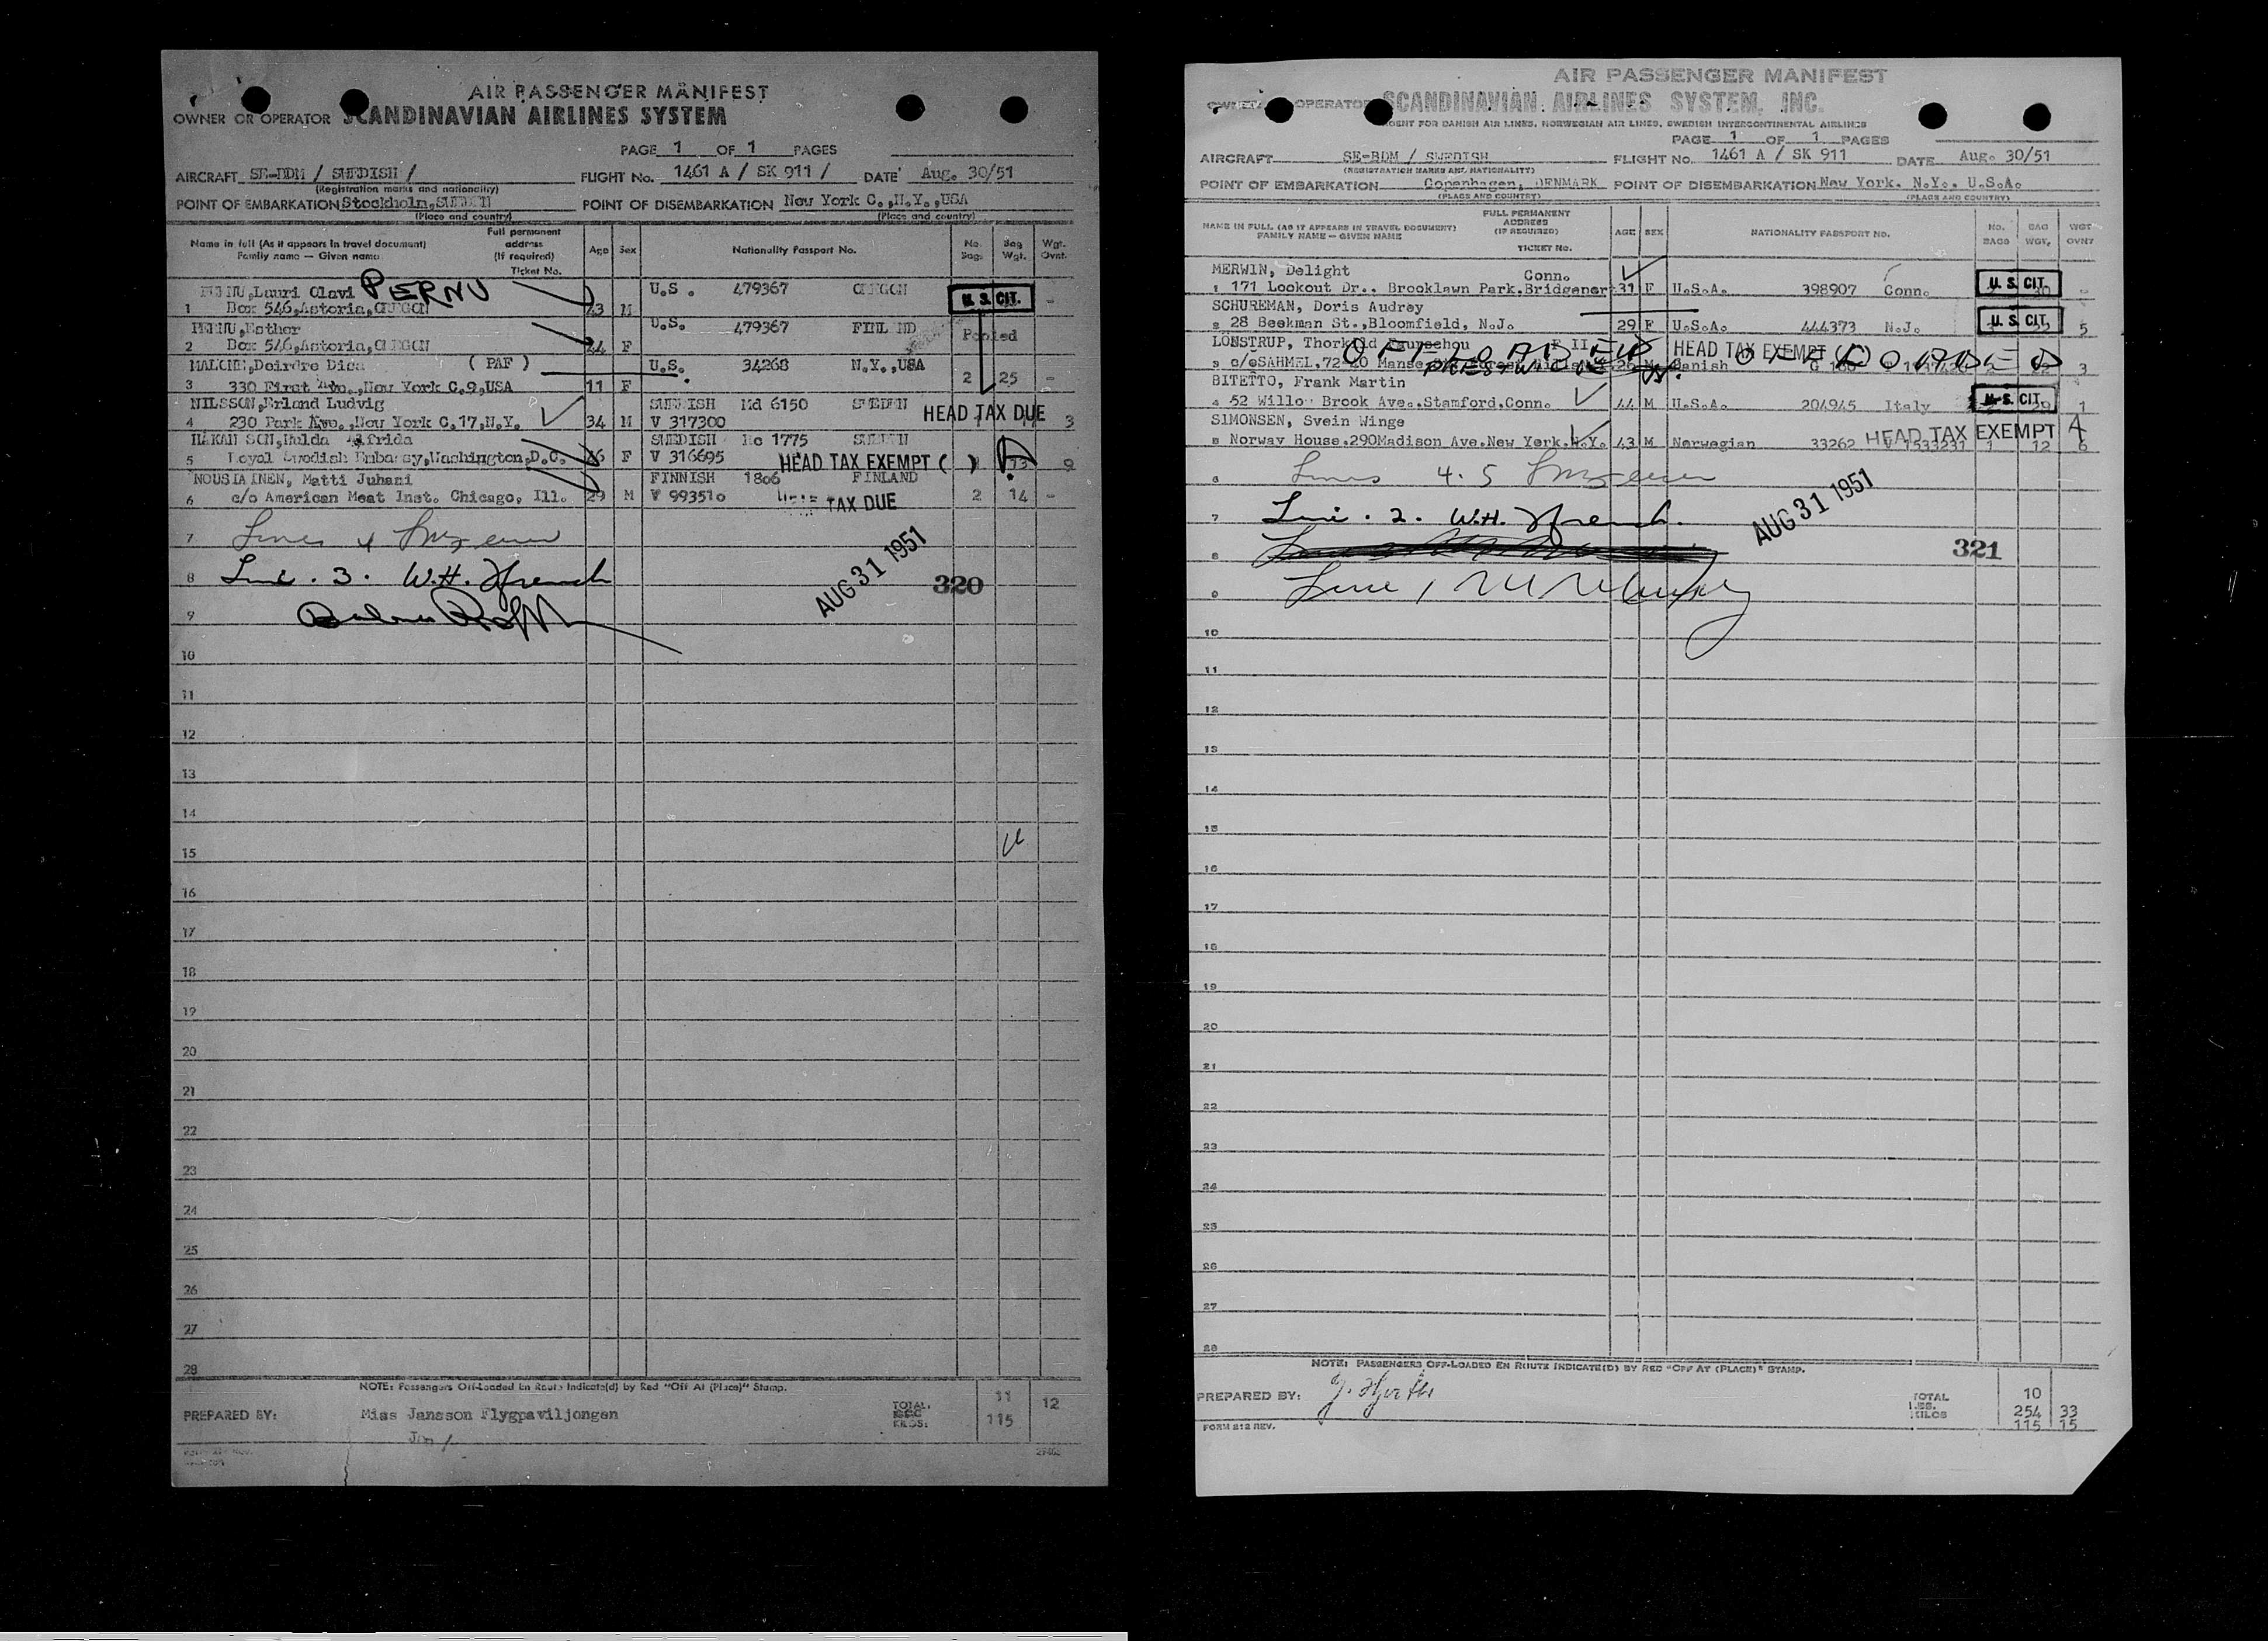 AIR PASSENGER MANIFEST
OWNER OR OPERATOR SCANDINAVIAN AIRLINES SYSTEM
PAGE 1 OF 1 PAGES
AIRCRAFT SE-BDM / SWEDISH / FLIGHT No. 1461 A / SK 911 / DATE Aug. 30/51
(Registration marks and nationality)
POINT OF EMBARKATION Stockholm, SWEDEN POINT OF DISEMBARKATION New York C.,N.Y.,USA
(Place and country) (Place and country)
Name in full (As it appears in travel document) Family name — Given name Full permanent address (If required) Ticket No. Age Sex Nationality Passport No. No. Bags Bag Wgt. Wgt. Ovnt.
PERNU,Lauri Olavi PERNU U.S. 479367 OREGON U. S. CIT. -
1 Box 546,Astoria,OREGON M
PERNU,Esther U.S. 479367 FINLAND Pooled
2 Box 546,Astoria,OREGON F
Deirdre ( PAF ) U.S. 34268 N.Y.,USA
3 330 First Ave.,New York C.9,USA 11 F 2 25 -
NILSSON,Erland Ludvig SWEDISH Md 6150 SWEDEN HEAD TAX DUE
4 230 Park Ave.,New York C.17,N.Y. 34 M V 317300 3
HAKANSON,Hulda SWEDISH 1775 SWEDEN
5 Royal Swedish Embassy,Washington,D.C. F V 316695 HEAD TAX EXEMPT ( ) 13 9
NOUSIAINEN, Matti Juhani FINNISH 1806 FINLAND
6 c/o American Meat Inst. Chicago, Ill. 29 M V 993510 TAX DUE 2 14 -
7 Lines 4
8 Line . 3 . W.H. French AUG 31 1951 320
9
10
11
12
13
14
15
16
17
18
19
20
21
22
23
24
25
26
27
28
NOTE: Passengers Off-Loaded En Route Indicate(d) by Red "Off At (Place)" Stamp.
PREPARED BY: Miss Jansson Flygpaviljongen TOTAL. KILOS: 11 115 12
AIR PASSENGER MANIFEST
OPERATOR SCANDINAVIAN AIRLINES SYSTEM, INC.
AGENT FOR DANISH AIR LINES, NORWEGIAN AIR LINES, SWEDISH INTERCONTINENTAL AIRLINES
PAGE 1 OF 1 PAGES
AIRCRAFT SE-BDM / SWEDISH FLIGHT No. 1461 A / SK 911 DATE Aug. 30/51
(REGISTRATION MARKS AND NATIONALITY)
POINT OF EMBARKATION Copenhagen, DENMARK POINT OF DISEMBARKATION New York, N.Y., U.S.A.
(PLACE AND COUNTRY) (PLACE AND COUNTRY)
NAME IN FULL (AS IT APPEARS IN TRAVEL DOCUMENT) FAMILY NAME — GIVEN NAME FULL PERMANENT ADDRESS (IF REQUIRED) TICKET No. AGE SEX NATIONALITY PASSPORT NO. NO. BAGS BAG WGT. WGT OVNT
MERWIN, Delight Conn.
1 171 Lookout Dr., Brooklawn Park.Bridgeport 31 F U.S.A. 398907 Conn. U. S. CIT. -
SCHUREMAN, Doris Audrey
2 28 Beekman St.,Bloomfield, N.J. 29 F U.S.A. 444373 N.J. U. S. CIT. 5
LÖNSTRUP, Thorkild F II OFFLOADED HEAD TAX EXEMPT OFFLOADED
3 c/o SAHMEL,72-20 PRESTWICK Danish 3
BITETTO, Frank Martin
4 52 Willow Brook Ave.,Stamford,Conn. 44 M U.S.A. 204945 Italy U. S. CIT. 1
SIMONSEN, Svein Winge HEAD TAX EXEMPT
5 Norway House.290Madison Ave.New York.N.Y. 43 M Norwegian 33262 V 1333231 1 12 6
6 Lines 4. 5
7 Line . 2. W.H. French. AUG 31 1951
8 321
9 Line 1
10
11
12
13
14
15
16
17
18
19
20
21
22
23
24
25
26
27
28
NOTE: PASSENGERS OFF-LOADED EN ROUTE INDICATE(D) BY RED "OFF AT (PLACE)" STAMP.
PREPARED BY: TOTAL 10
LBS. 254 33
KILOS 115 15
FORM 812 REV.